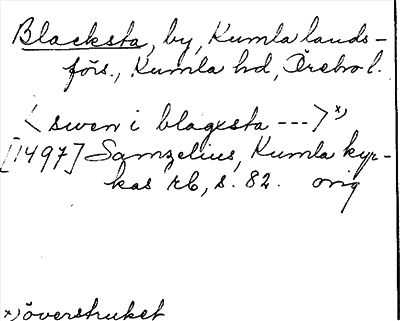 Blacksta, by, Kumla lands-
förs., Kumla hd, Örebro l.
< swen i blagxsta --->x)
[1497] Samzelius, Kumla kyr-
kas rb, s. 82. orig
x) överstruket